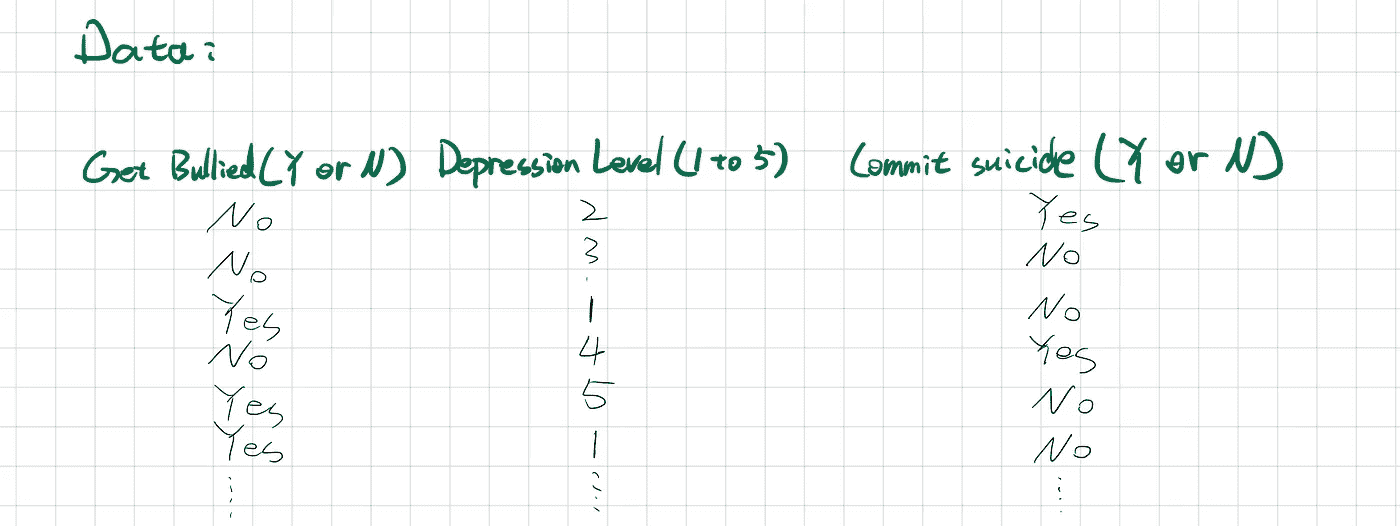 Data:
Get Bullied (Y or N) Depression Level (1 to 5) Commit suicide (Y or N)
No 2 Yes
No 3 No
Yes 1 No
No 4 Yes
Yes 5 No
Yes 1 No
⋮ ⋮ ⋮